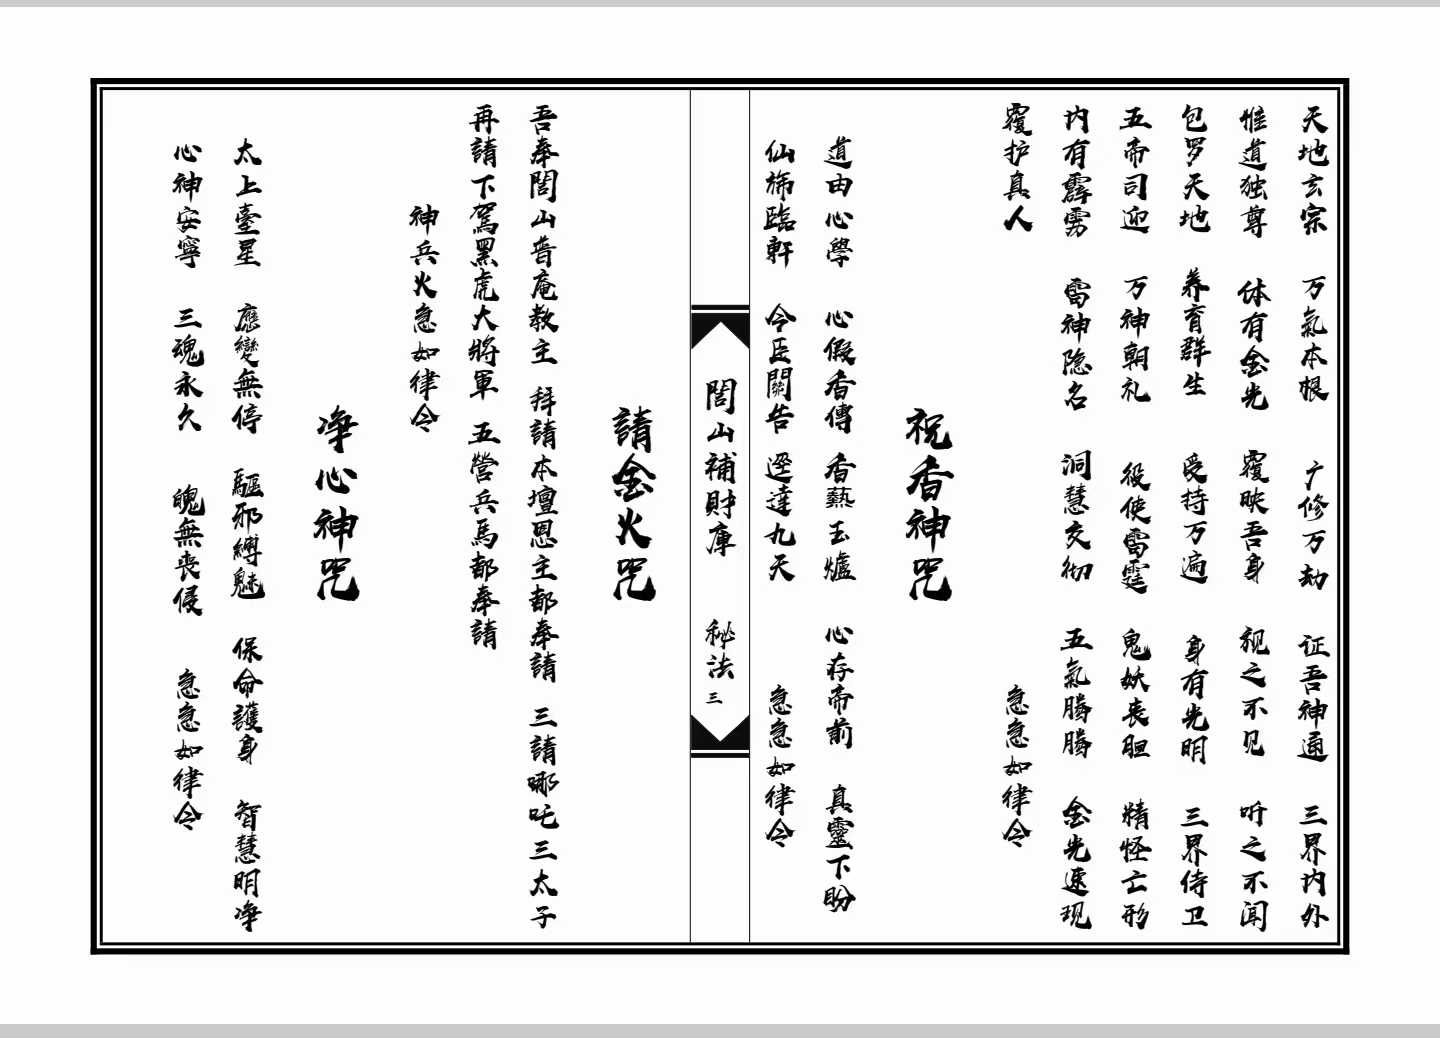 天地玄宗 万氣本根 广修万劫 证吾神通 三界内外
惟道独尊 体有金光 覆映吾身 视之不见 听之不闻
包罗天地 养育群生 受持万遍 身有光明 三界侍卫
五帝司迎 万神朝礼 役使雷霆 鬼妖丧胆 精怪亡形
内有霹雳 雷神隐名 洞慧交彻 五氣腾腾 金光速现
覆护真人 急急如律令
祝香神咒
道由心學 心假香傳 香爇玉爐 心存帝前 真靈下盼
仙旆臨軒 令臣關告 逕達九天 急急如律令
閭山補財庫 秘法 三
請金火咒
吾奉閭山普庵教主 拜請本壇恩主都奉請 三請哪吒三太子
再請下駕黑虎大將軍 五營兵馬都奉請
神兵火急如律令
净心神咒
太上臺星 應變無停 驅邪縛魅 保命護身 智慧明净
心神安寧 三魂永久 魄無喪侵 急急如律令